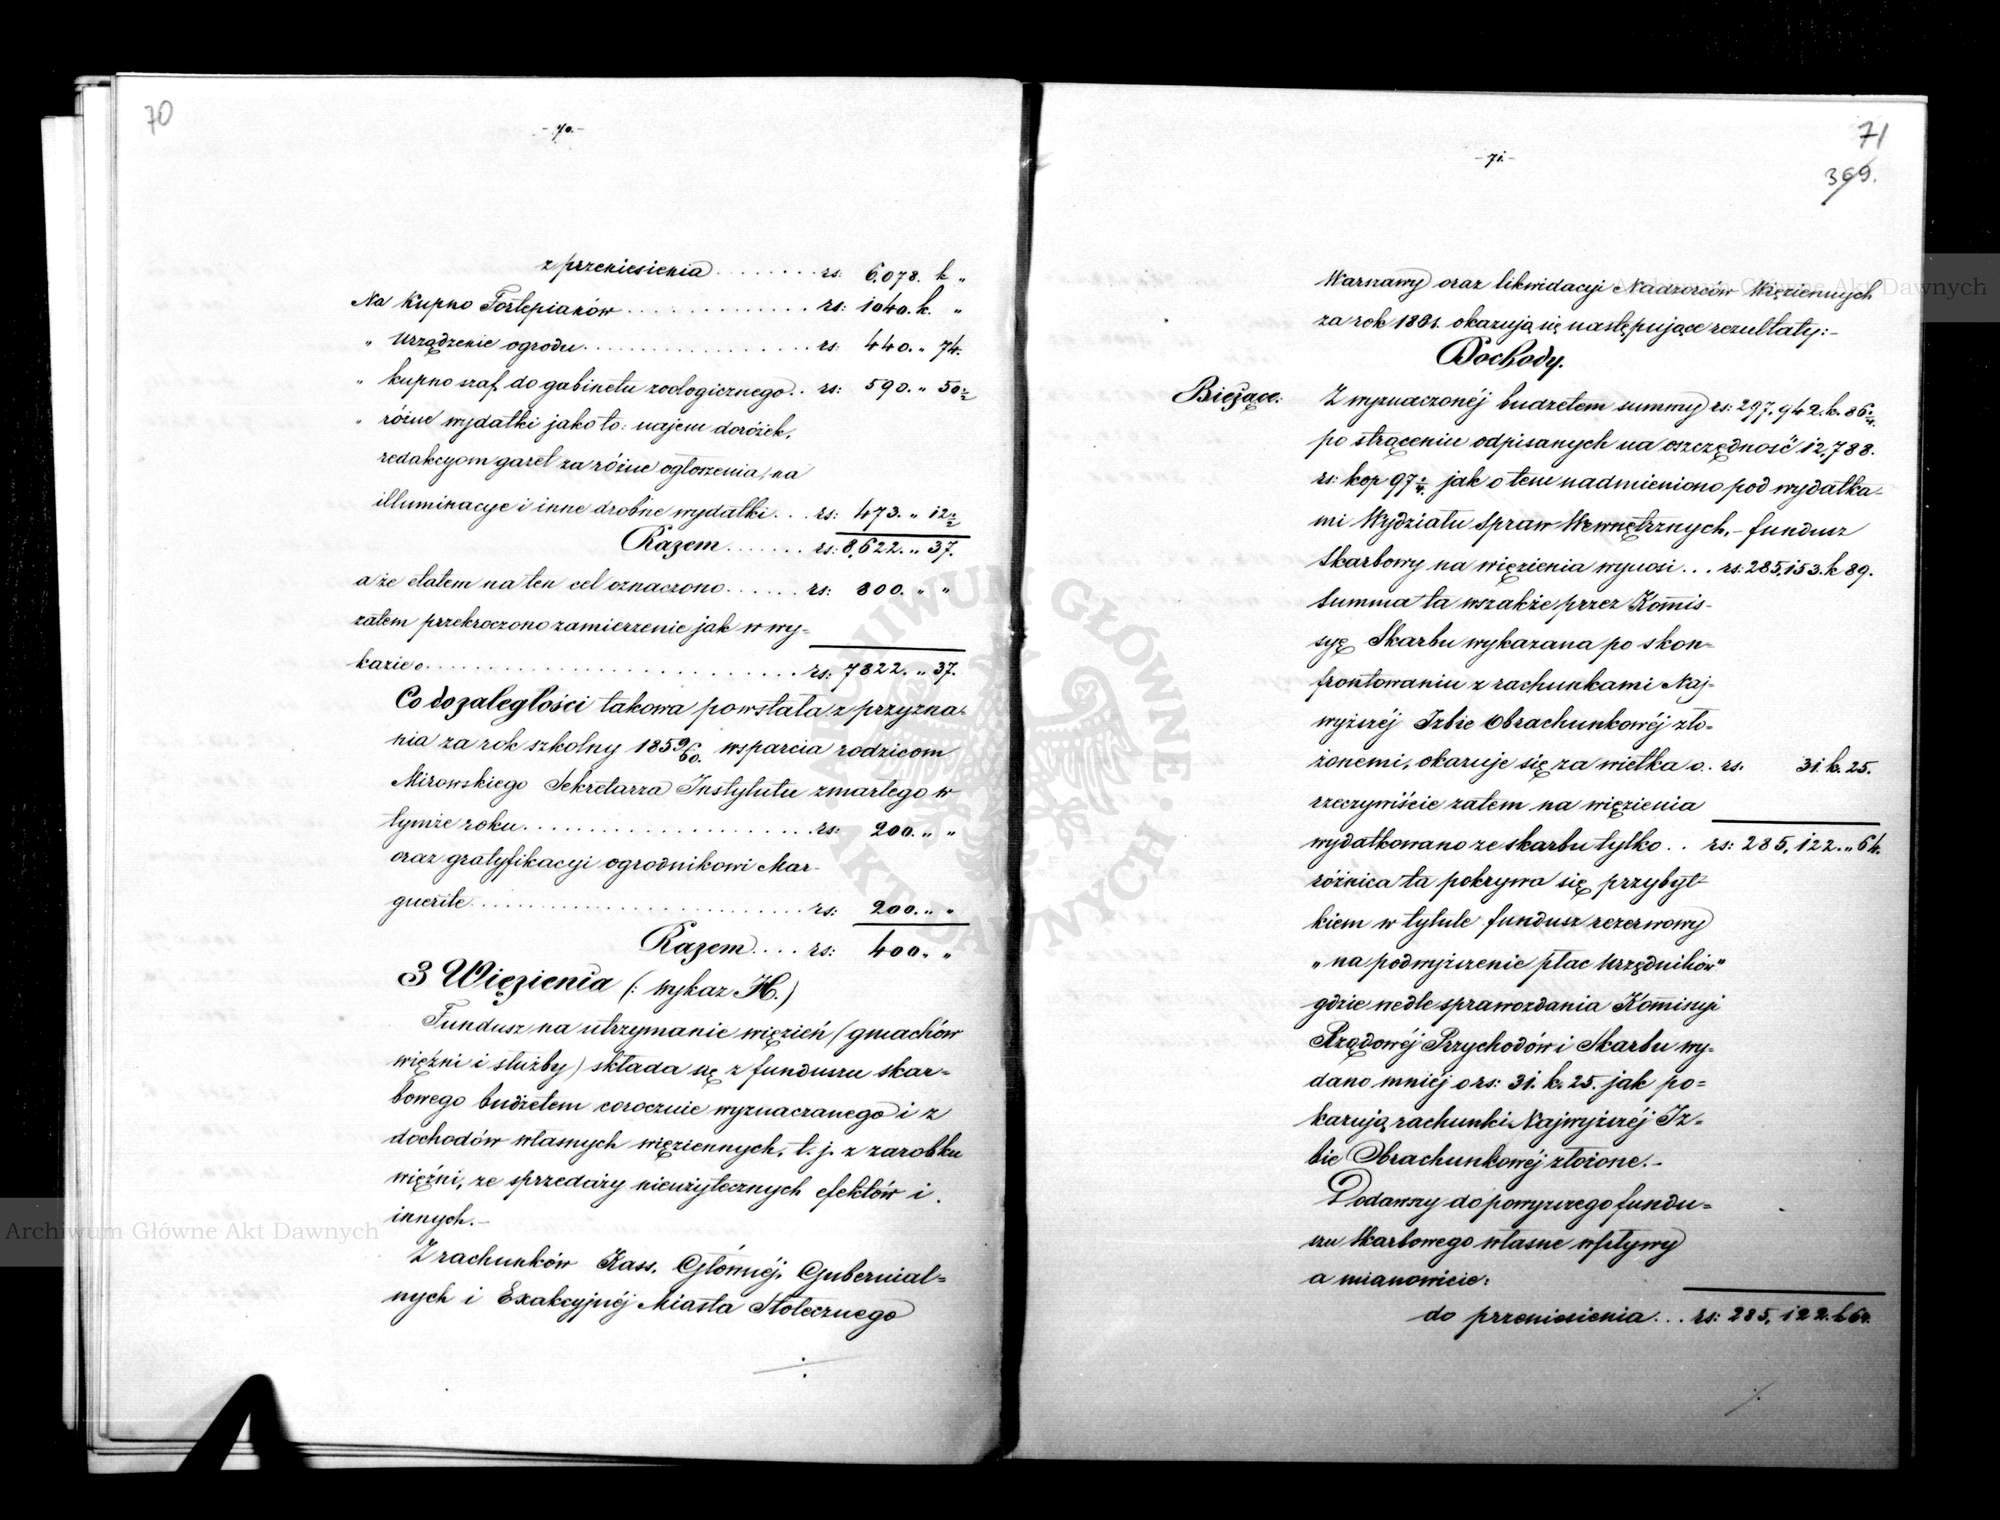 70
- 70. -
z przeniesienia . . . . . . . . rs: 6,078. k „
Na Kupno Fortepianów . . . . . . . . . . . . . rs: 1040. k. „
„ Urządzenie ogrodu . . . . . . . . . . . . . . . rs: 440. „ 74.
„ kupno szaf do gabinetu zoologicznego . . rs: 590. „ 50½
„ różne wydatki jako to: najem dorożek,
redakcyom gazet za różne ogłoszenia, na
illuminacye i inne drobne wydatki . . . rs: 473. „ 12½
Razem . . . . . . . rs: 8,622. „ 37.
a że etatem na ten cel oznaczono . . . . . . rs: 800. „ „
zatem przekroczono zamierzenie jak w wy-
kazie o . . . . . . . . . . . . . . . . . . . . . . . . . rs: 7822. „ 37.
Co do zaległości takowa powstała z przyzna-
nia za rok szkolny 1859/60. wsparcia rodzicom
Mirowskiego Sekretarza Instytutu zmarłego w
tymże roku . . . . . . . . . . . . . . . . . . . . . rs: 200. „ „
oraz gratyfikacyi ogrodnikowi Mar-
guerite . . . . . . . . . . . . . . . . . . . . . . . . rs: 200. „ „
Razem . . . . rs: 400. „ „
3 Więzienia (: wykaz H.)
Fundusz na utrzymanie więzień (gmachów
więźni i służby) składa się z funduszu skar-
bowego budżetem corocznie wyznaczanego i z
dochodów własnych więziennych, t. j. z zarobku
więźni, ze sprzedaży nieużytecznych efektów i
innych. -
Z rachunków Kass, Głównej, Gubernial-
nych i Exakcyjnéj Miasta Stołecznego
./.
71
369.
- 71. -
Warszawy oraz likwidacyi Nadzorców Więziennych
za rok 1861. okazują się następujące rezultaty: -
Dochody.
Bieżące: Z wyznaczonéj budżetem summy rs: 297,942. k. 86¼
po strąceniu odpisanych na oszczędność 12,788.
rs: kop 97¼ jak o tem nadmieniono pod wydatka-
mi Wydziału Spraw Wewnętrznych, - fundusz
Skarbowy na więzienia wynosi . . . rs: 285,153. k 89.
Summa ta wszakże przez Kommis-
syę Skarbu wykazana po skon-
frontowaniu z rachunkami Naj-
wyższéj Izbie Obrachunkowéj zło-
żonemi, okazuje się za wielka o . rs. 31. k. 25.
rzeczywiście zatem na więzienia
wydatkowano ze skarbu tylko . . rs: 285,122. „ 64.
różnica ta pokrywa się przybyt-
kiem w tytule fundusz rezerwowy
„ na podwyższenie płac Urzędników"
gdzie wedle sprawozdania Kommissyi
Rządowéj Przychodów i Skarbu wy-
dano mniéj o rs: 31. k. 25. jak po-
kazują rachunki Najwyższéj Iz-
bie Obrachunkowéj złożone. -
Dodawszy do powyższego fundu-
szu Skarbowego własne wpływy
a mianowicie:
do przeniesienia . . . rs: 285,122. k 64.
./.
Archiwum Główne Akt Dawnych
Archiwum Główne Akt Dawnych
ARCHIWUM GŁÓWNE AKT DAWNYCH